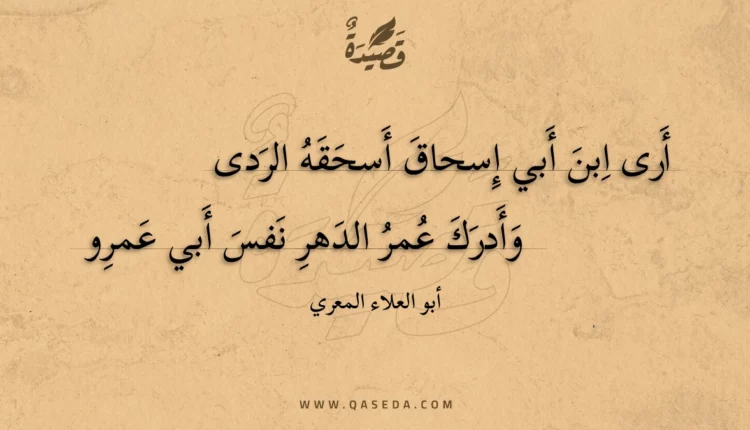 قَصِيْدَةٌ
أَرى اِبنَ أَبي إِسحاقَ أَسحَقَهُ الرَدى
وَأَدرَكَ عُمرُ الدَهرِ نَفسَ أَبي عَمرِو
أبو العلاء المعري
WWW.QASEDA.COM